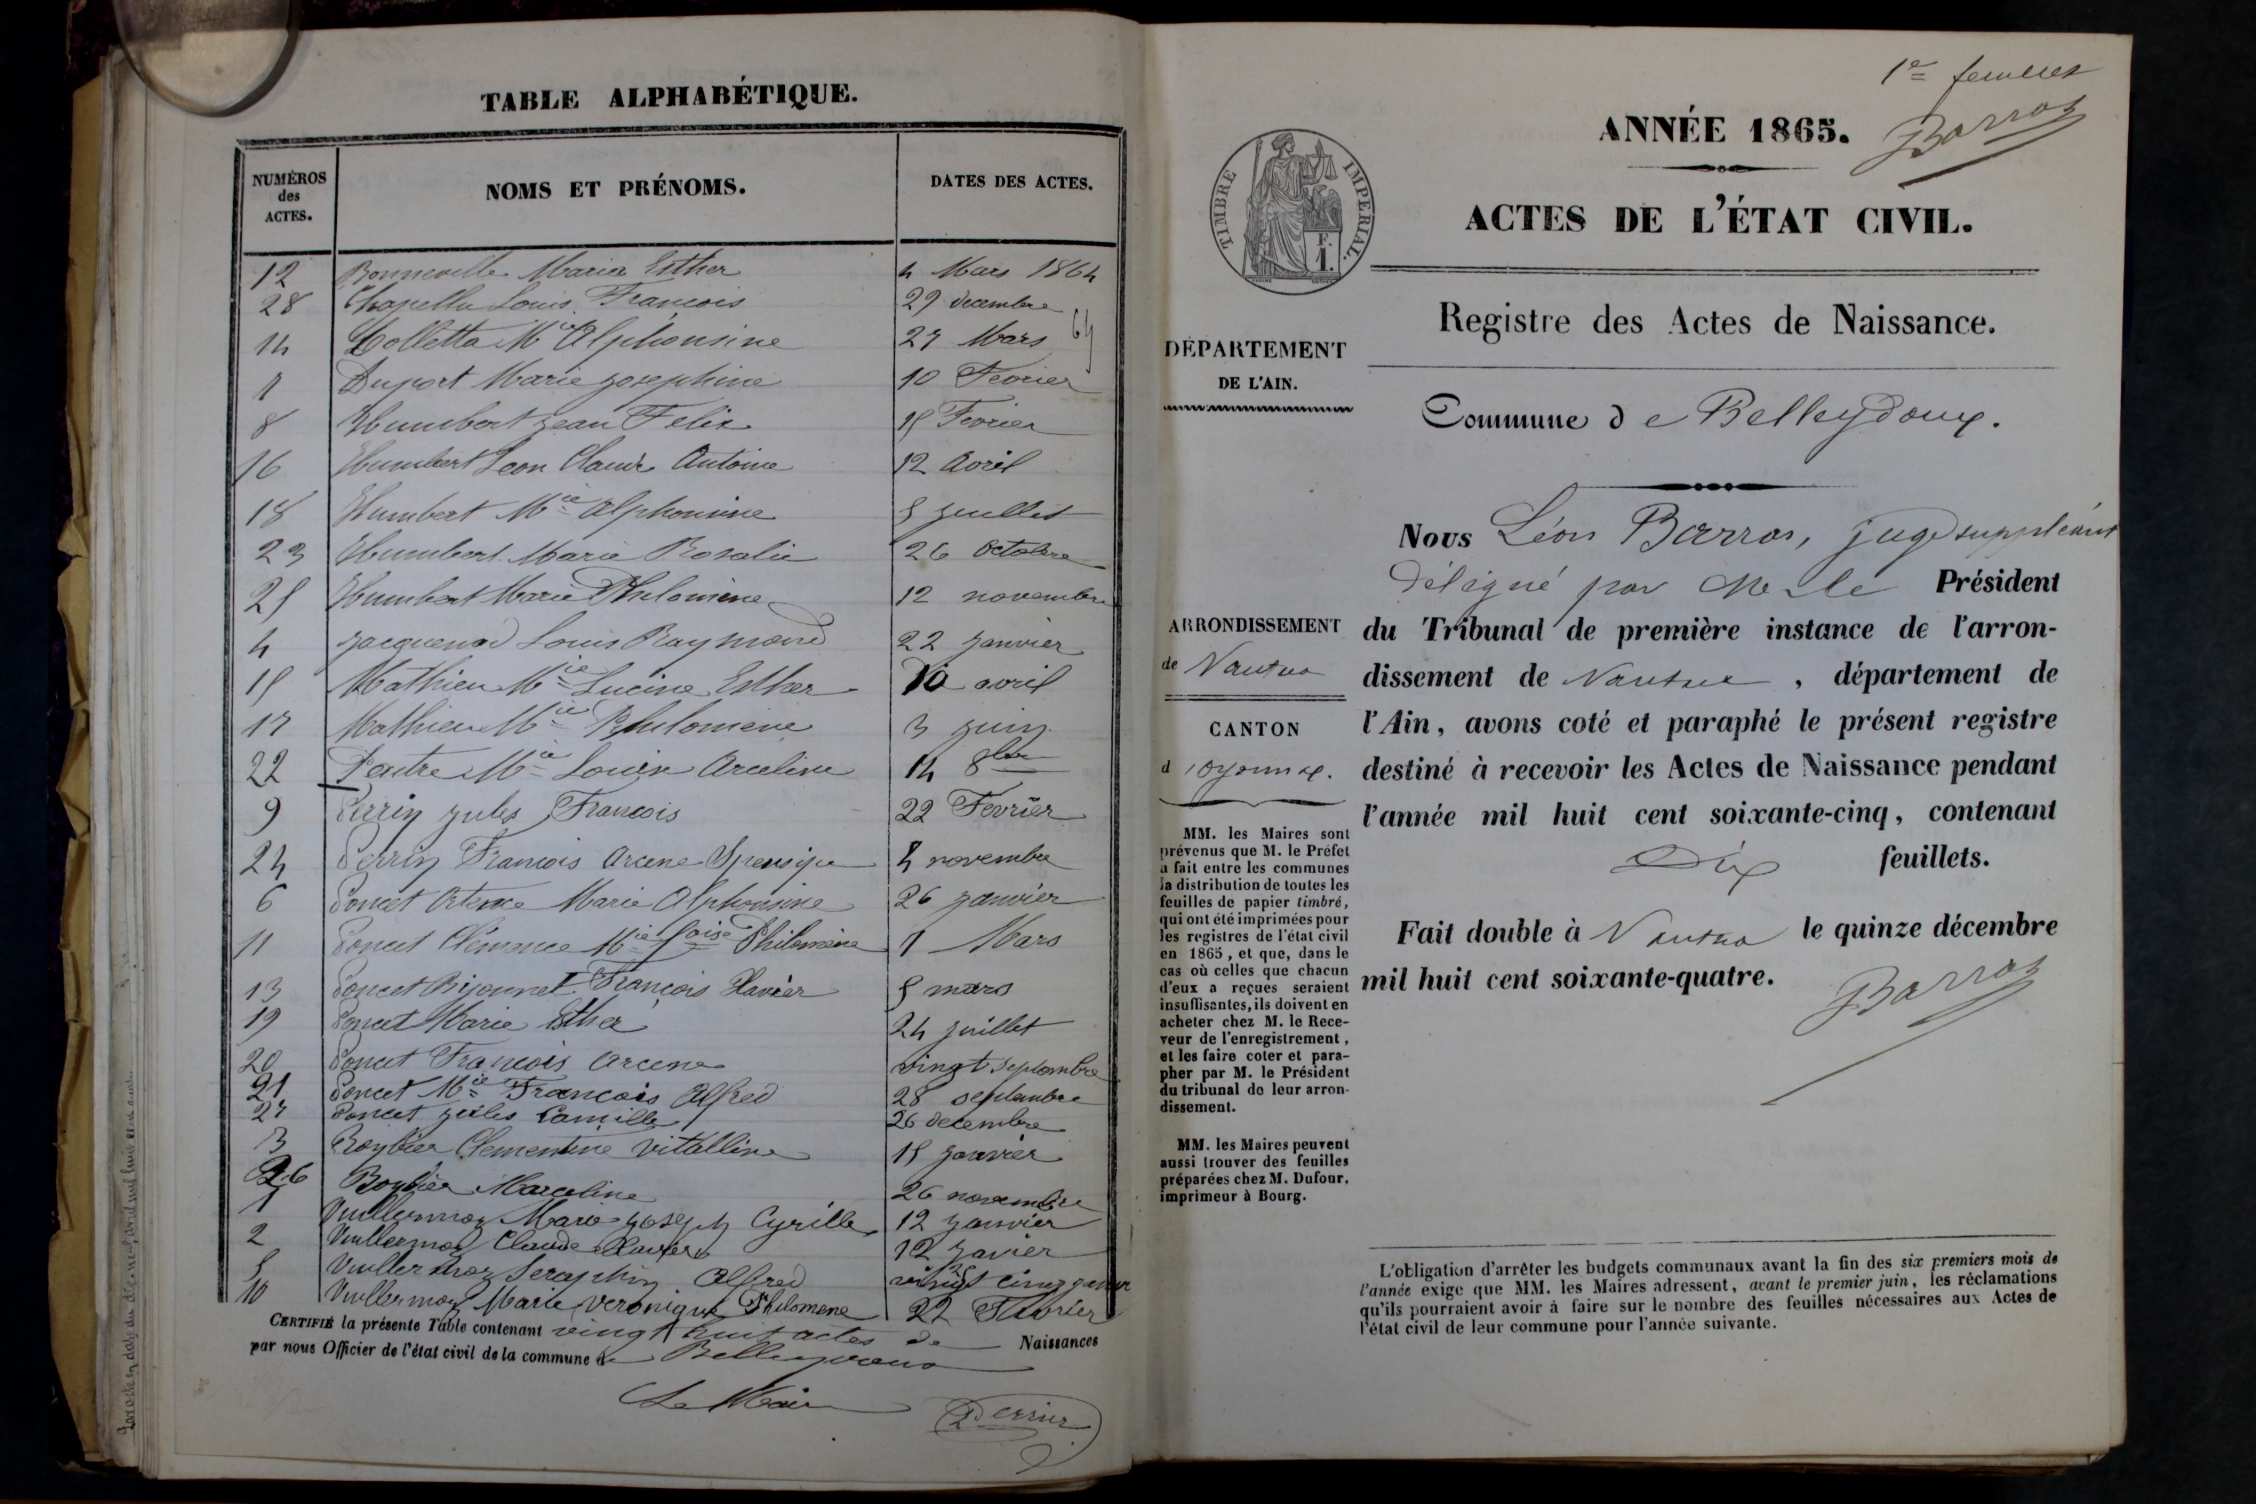 TABLE ALPHABÉTIQUE.
NUMÉROS des ACTES. NOMS ET PRÉNOMS. DATES DES ACTES.
12 Bonneville Maria Esther 4 Mars 1864
28 Chapellu Louis François 29 decembre
14 Colletta Mie Alphonsine 27 Mars 64
7 Duport Marie josephine 10 Fevrier
8 Humbert jean Felix 15 Fevrier
16 Humbert Leon Claude Antoine 12 Avril
18 Humbert Mie Alphonsine 5 juillet
23 Humbert Marie Rosalie 26 Octobre
25 Humbert Marie Philomène 12 novembre
4 jacquenod Louis Raymond 22 janvier
15 Mathieu Mie Lucine Esther 10 avril
17 Mathieu Mie Philomene 3 juin
22 Mie Arceline 14 8bre
9 Perrin jules François 22 Fevrier
24 Perrin Francois Arcene Speusipe 4 novembre
6 Poncet Ortence Marie Alphonsine 26 janvier
11 Poncet Clémence Mie foise Philomène 1 Mars
13 Poncet Bijonnet François Xavier 5 mars
19 Poncet Marie Esther 24 juillet
20 Poncet François Arcene vingt septembre
21 Poncet Mie François Alfred 28 septembre
27 Poncet jules Camille 26 decembre
3 Roybier Clementine vittalline 15 janvier
26 Roybier Marceline 26 novembre
1 Vuillermoz Marie joseph Cyrille 12 janvier
2 Vuillermoz Claude Xavier 12 javier
5 Vuillermoz Seraphin Alfred vingt cinq
10 Vuillermoz Marie veronique Philomene 22 Fevrier
CERTIFIÉ la présente Table contenant vingt huit actes de Naissances
par nous Officier de l'état civil de la commune de Belleydoux
Le Maire
Perrin
1er feuillet
Barroz
ANNÉE 1865.
ACTES DE L'ÉTAT CIVIL.
TIMBRE IMPÉRIAL.
F.
1.
Registre des Actes de Naissance.
DÉPARTEMENT
DE L'AIN.
Commune de Belleydoux.
Nous Léon Barros, juge suppléant
délégué par Mr le Président
du Tribunal de première instance de l'arron-
dissement de Nantua , département de
l'Ain, avons coté et paraphé le présent registre
destiné à recevoir les Actes de Naissance pendant
l'année mil huit cent soixante-cinq, contenant
Dix feuillets.
Fait double à Nantua le quinze décembre
mil huit cent soixante-quatre.
Barroz
ARRONDISSEMENT
de Nantua
CANTON
d'oyonnax.
MM. les Maires sont
prévenus que M. le Préfet
a fait entre les communes
la distribution de toutes les
feuilles de papier timbré,
qui ont été imprimées pour
les registres de l'état civil
en 1865, et que, dans le
cas où celles que chacun
d'eux a reçues seraient
insuffisantes, ils doivent en
acheter chez M. le Rece-
veur de l'enregistrement,
et les faire coter et para-
pher par M. le Président
du tribunal de leur arron-
dissement.
MM. les Maires peuvent
aussi trouver des feuilles
préparées chez M. Dufour,
imprimeur à Bourg.
L'obligation d'arrêter les budgets communaux avant la fin des six premiers mois de
l'année exige que MM. les Maires adressent, avant le premier juin, les réclamations
qu'ils pourraient avoir à faire sur le nombre des feuilles nécessaires aux Actes de
l'état civil de leur commune pour l'année suivante.